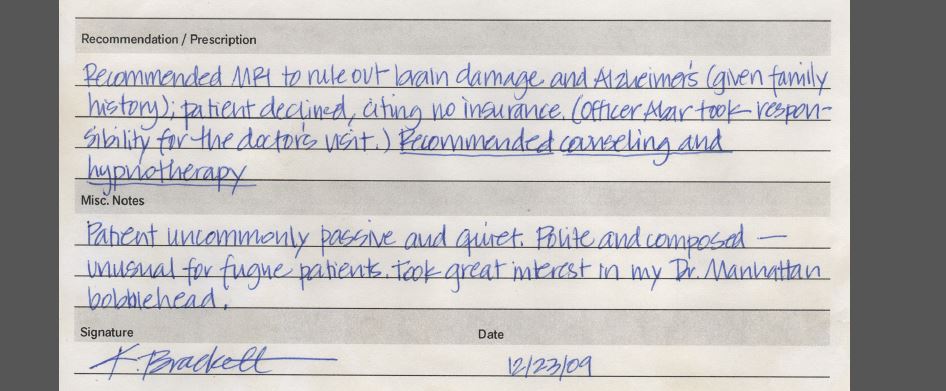 Recommendation / Prescription
Recommended MRI to rule out brain damage and Alzheimer's (given family
history); patient declined, citing no insurance. (Officer Abar took respon-
sibility for the doctor's visit.) Recommended counseling and
hypnotherapy
Misc. Notes
Patient uncommonly passive and quiet. Polite and composed —
unusual for fugue patients. Took great interest in my Dr. Manhattan
bobblehead.
Signature
Date
K. Brackett
12/23/09